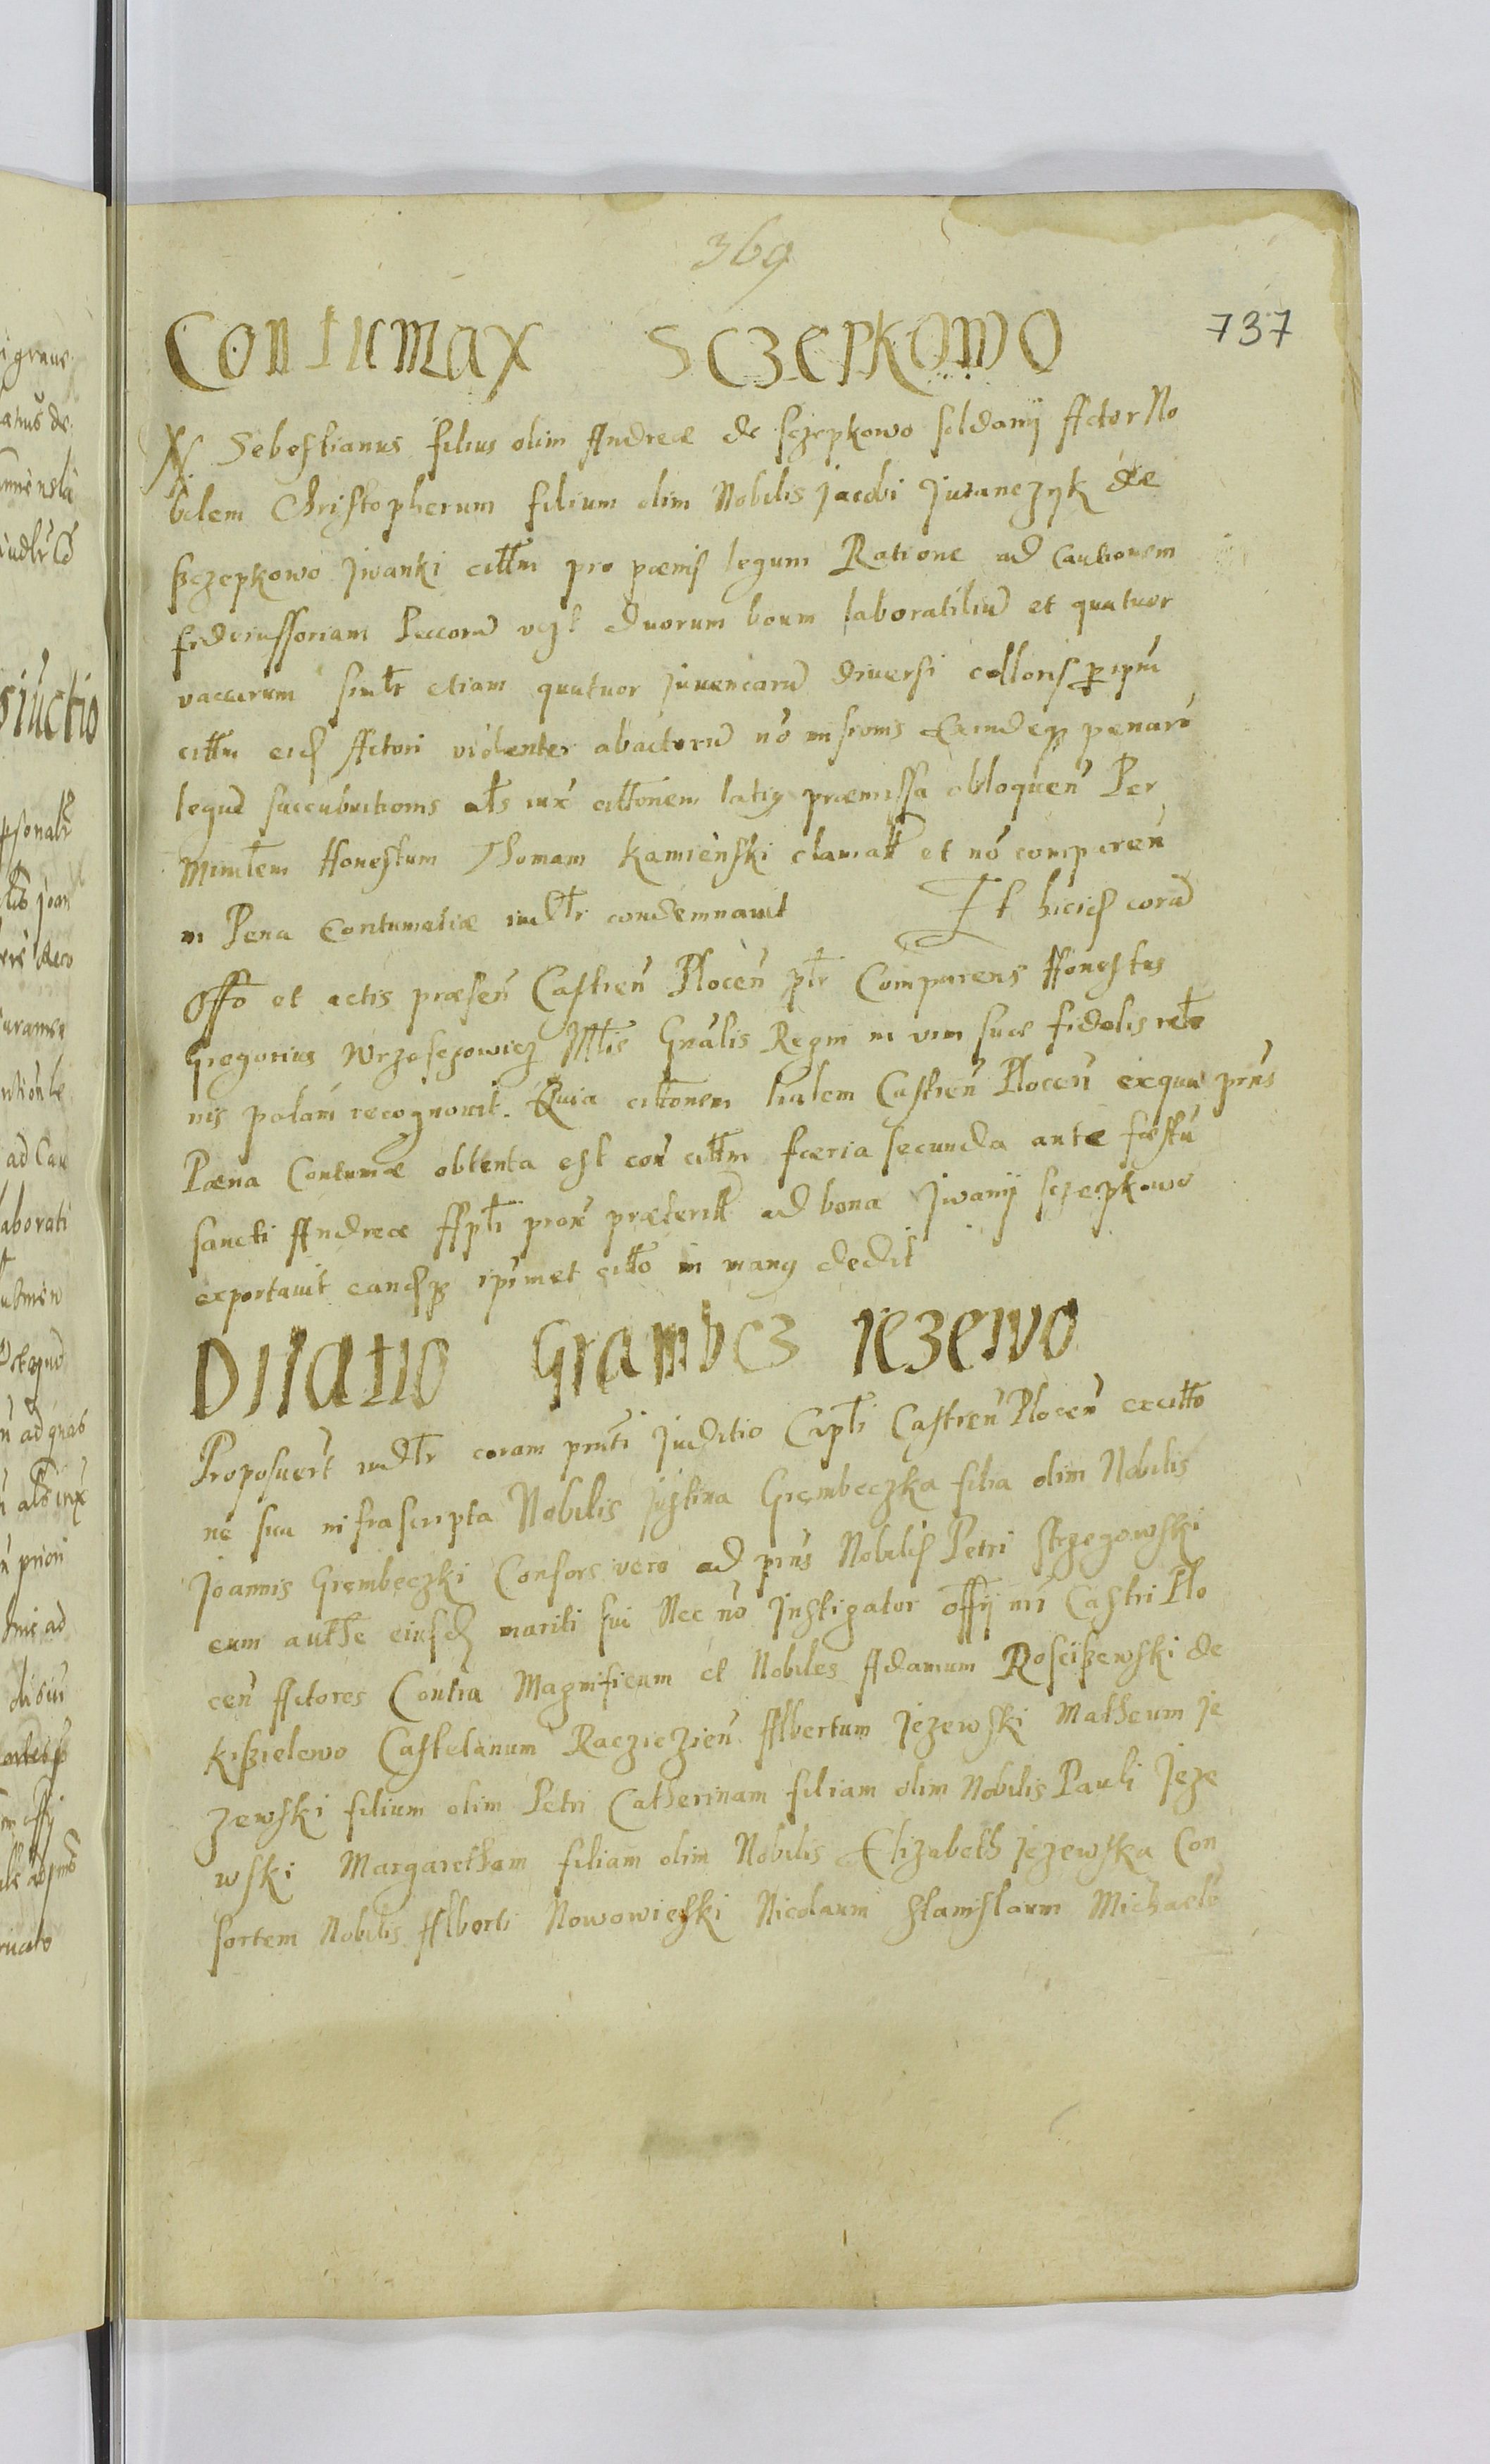 369
737
Contumax Sczepkowo
N. Sebestianus filius olim Andreæ de Sczepkowo soldanij Actor No
bilem Christopherum filium olim Nobilis Jacobi Jwanczyk de
Sczepkowo Jwanki cittm pro pœnis legum Ratione ad Cautionem
fideiussoriam Peccorū vczt duorum boum laboratiliū et quatuor
vaccarum simlr etiam quatuor Juuencarū diuersi colloris p ipm
cittm eid Actori violenter abactorū nō missionis Exindeq penarū
legud succubuitionis als iux cittonem latiq præmissa obloquen̄ Per
Minrlem Honestum Thomam Kamienski clamatt et nō comparen̄
in Pena Contumatiæ iudlr condemnauit It hicid corā
Offo et actis præsen̄ Castren̄ Plocen̄ plr Comparens Honestus
Gregorius Wrzesczowicz Mtlis Gn̄alis Regni in vim suæ fidelis rela
nis palam recognouit. Quia cittonem lralem Castren̄ Plocen̄ exqua prn̄s
Pœna Contumæ obtenta est con̄ cittm fœria secunda ante festū
Sancti Andreæ Aptli prox præteritt ad bona Jwanij Sczepkowo
exportauit eandq ipimet citto in manq dedit
Dilatio Grambcz Jezewo
Proposuert iudlr coram prn̄ti Juditio Captli Castren̄ Plocen̄ excitto
ne sua infrascripta Nobilis Justina Grembeczka filia olim Nobilis
Joannis Grembeczki Consors vero ad prn̄s Nobilis Petri Strzegowski
cum authe eiusd mariti sui Nec nō Instigator offij nri Castri Plo
cen̄ Actores Contra Magnificum et Nobiles Adamum Rosciszewski de
Kiszielewo Castelanum Racziezien̄ Albertum Jezewski Matheum Je
zewski filium olim Petri Catherinam filiam olim Nobilis Pauli Jeze
wski Margaretham filiam olim Nobilis Elizabeth Jezewska Con
sortem Nobilis Alberti Nowowieski Nicolaum Stanislaum Michaelē